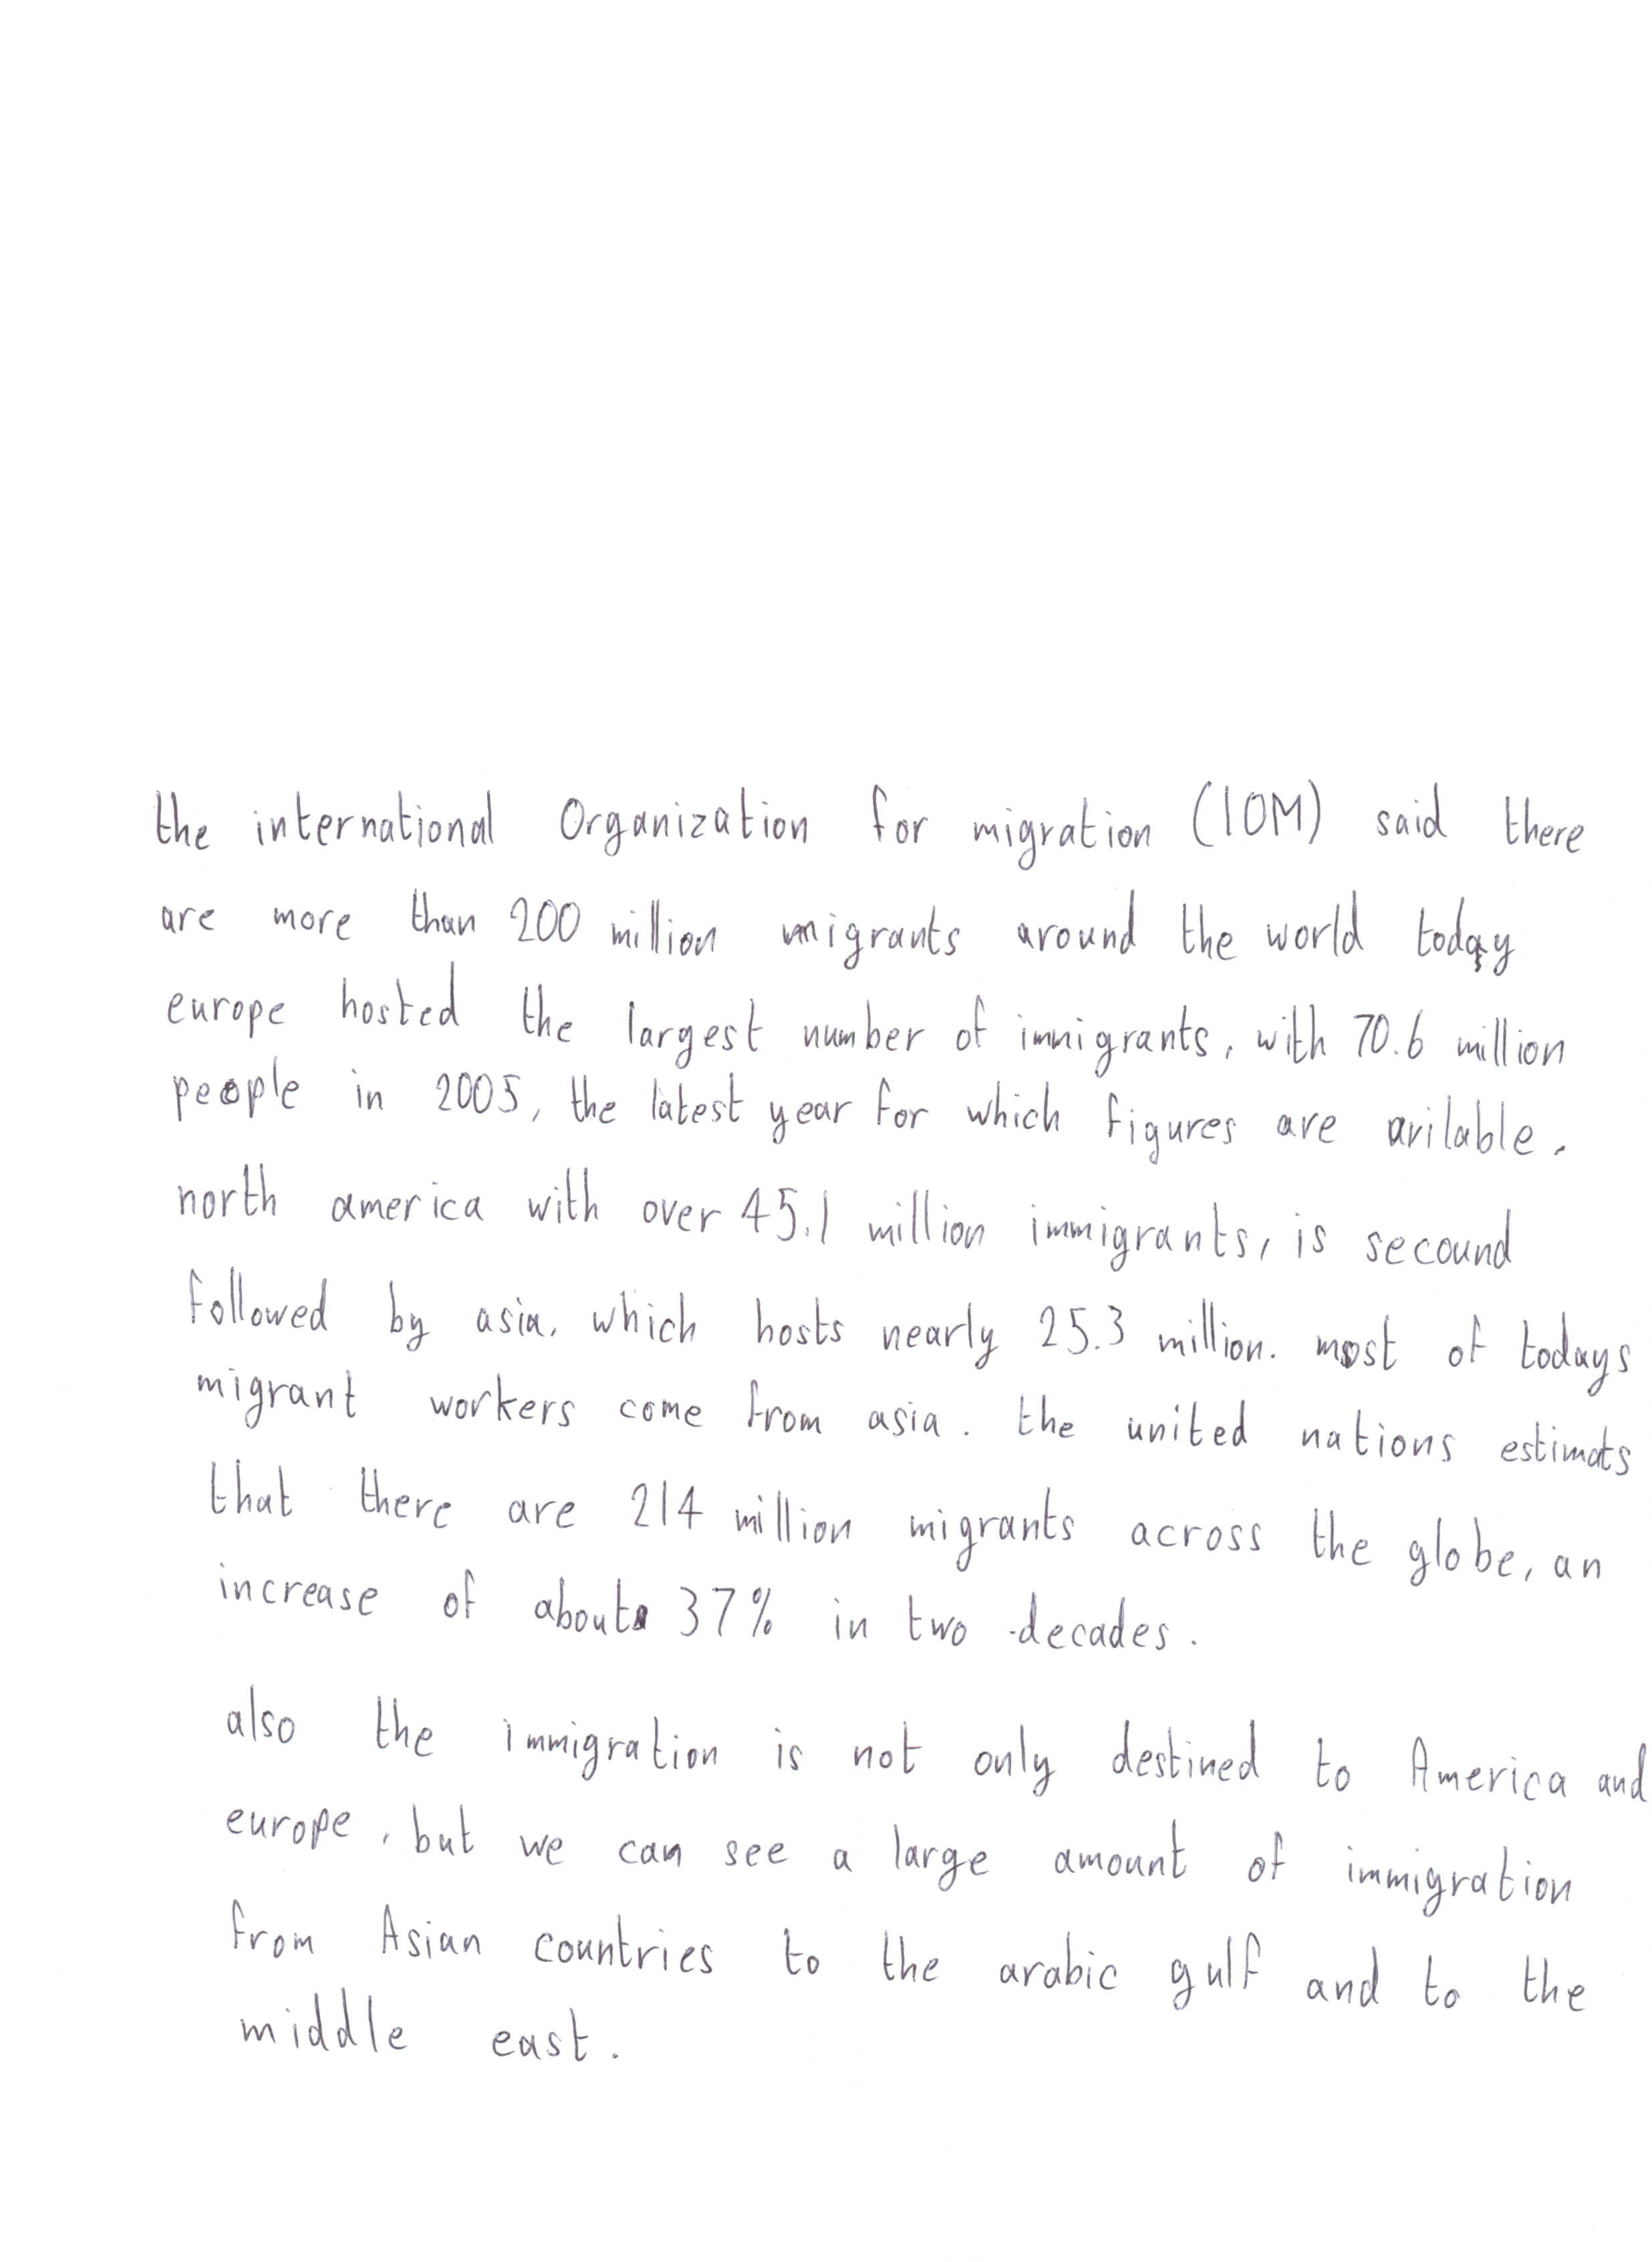 the international Organization for migration (IOM) said there
are more than 200 million migrants around the world today
europe hosted the largest number of immigrants, with 70.6 million
people in 2005, the latest year for which figures are arilable.
north america with over 45.1 million immigrants, is secound
followed by asia, which hosts nearly 25.3 million. most of todays
migrant workers come from asia. the united nations estimats
that there are 214 million migrants across the globe, an
increase of about 37% in two decades.
also the immigration is not only destined to America and
europe, but we can see a large amount of immigration
from Asian countries to the arabic gulf and to the
middle east.